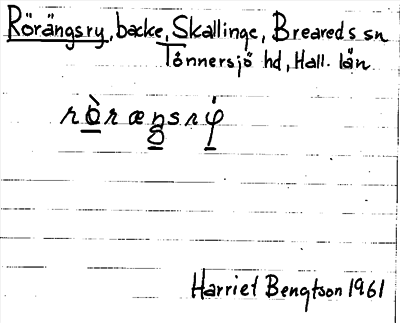 Rörängsry, backe, Skallinge, Breareds sn
Tönnersjö hd, Hall. län
Harriet Bengtson 1961